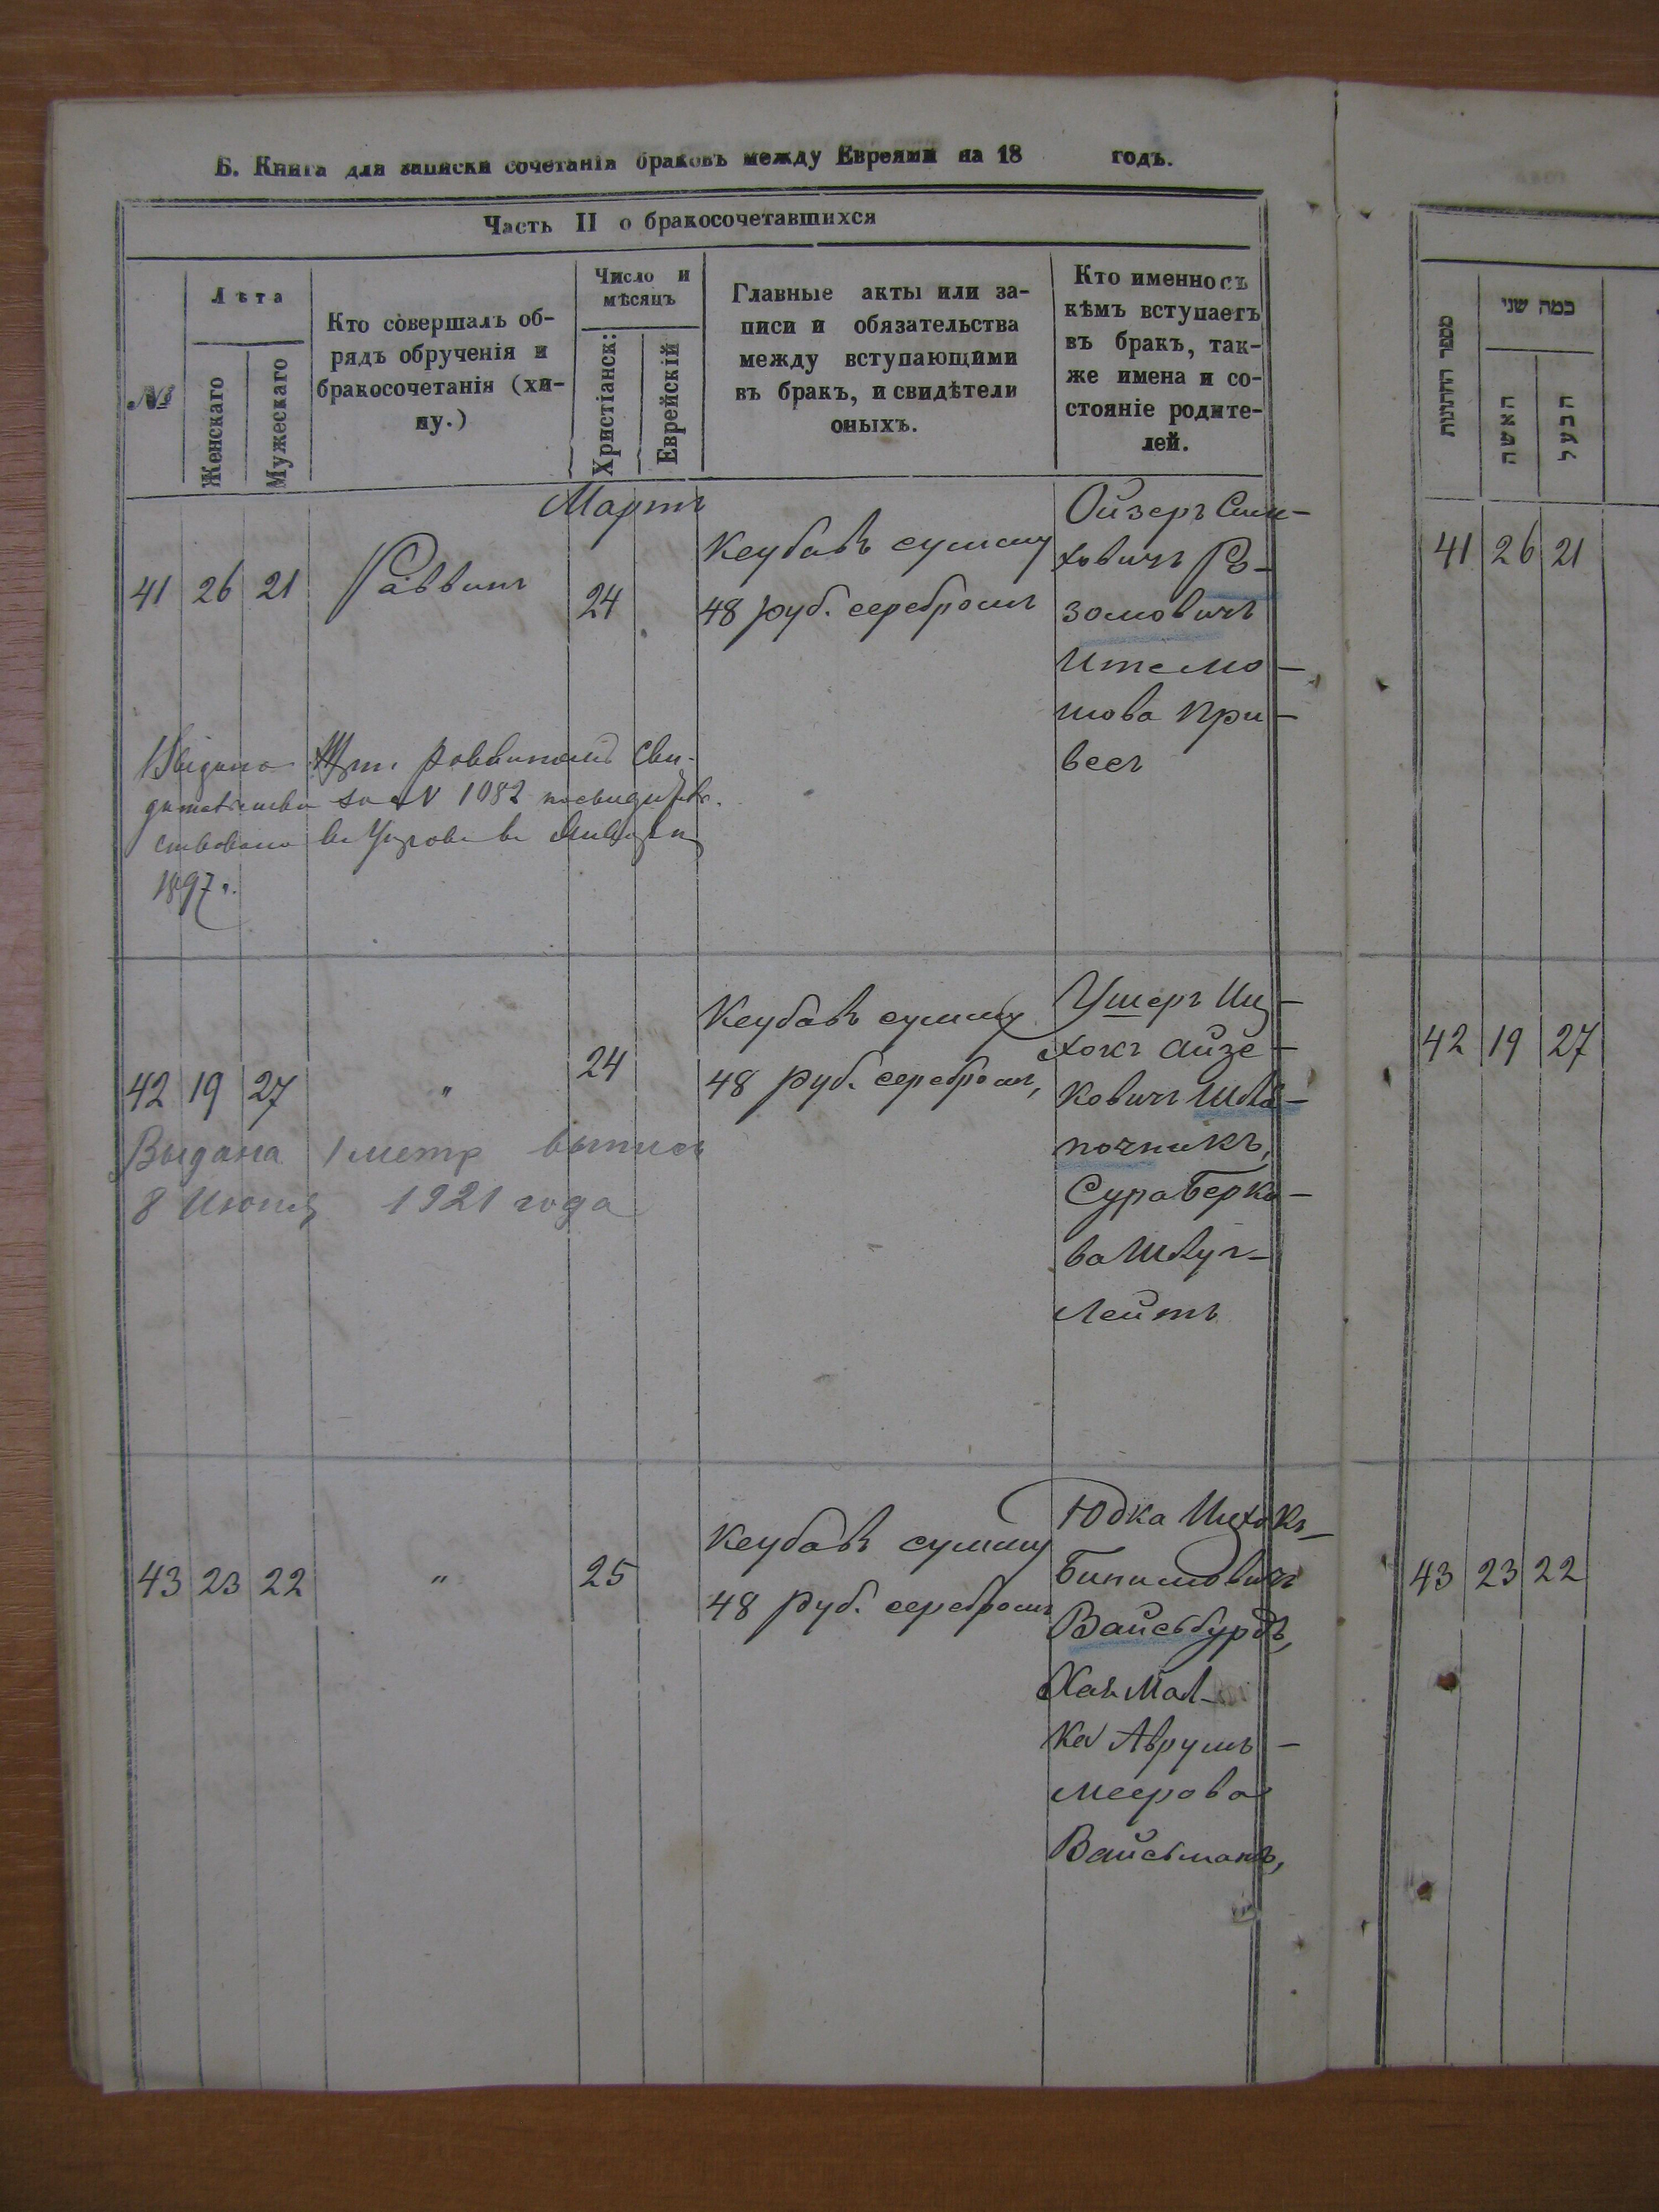 Б. Книга для записки сочетанія браковъ между Евреями на 18 годъ.
Часть II о бракосочетавшихся
№
Лѣта
Женскаго
Мужескаго
Кто совершалъ об-
рядъ обрученія и
бракосочетанія (хи-
пу.)
Число и
мѣсяцъ
Христіанск:
Еврейскій
Главные акты или за-
писи и обязательства
между вступающими
въ бракъ, и свидѣтели
оныхъ.
Кто именно съ
кѣмъ вступаетъ
въ бракъ, так-
же имена и со-
стояніе родите-
лей.
Мартъ
41 26 21 Раввинъ 24
Кеубавъ сумму
48 руб. серебромъ
Ойзеръ Сим-
ховичъ Ро-
зомовичъ
Ите Мо-
шова При-
весъ
за № 1082
1897 г.
42 19 27 " 24
Кеубавъ сумму
48 руб. серебромъ,
Ушеръ Иц-
хокъ Айзе-
ковичъ Шля-
почникъ,
Сура Берко-
ва Шлуг-
лейтъ
Выдана 1 метр выпись
8 Июня 1921 года
43 23 22 " 25
Кеубавъ сумму
48 руб. серебромъ
Юдка Ицхокъ-
Бинимовичъ
Вайсбурдъ,
Хая Мал-
ка Аврумъ-
меерова
Вайсманъ,
מספר החתונות
כמה שני
האשה
הבעל
41 26 21
42 19 27
43 23 22